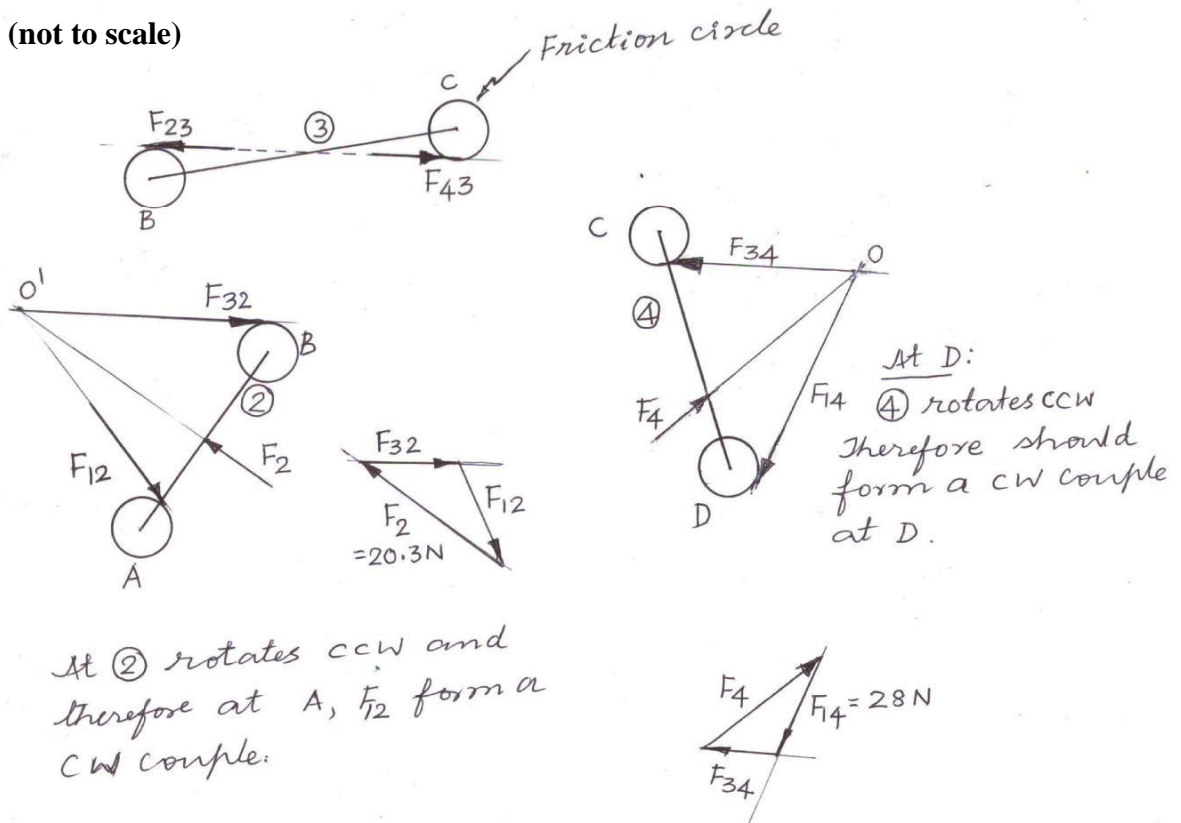 (not to scale)
Friction circle
C
F23
③
F43
B
C
F34
O
④
F4
F14
D
At D:
④ rotates ccw
Therefore should
form a cw couple
at D.
O'
F32
B
②
F12
F2
A
F32
F12
F2
=20.3N
At ② rotates ccw and
therefore at A, F12 form a
cw couple.
F4
F14=28N
F34